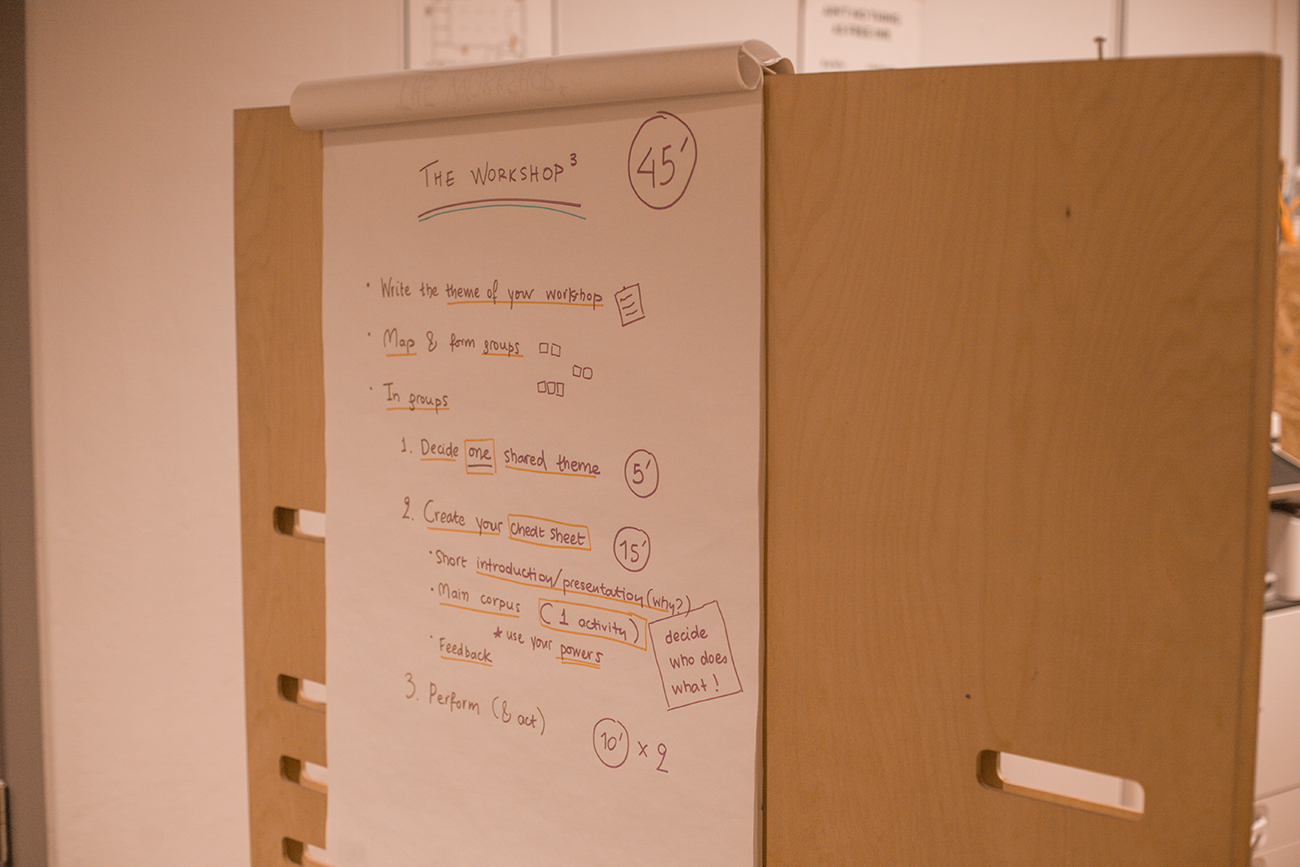 THE WORKSHOP³
45'
• Write the theme of your workshop
• Map & form groups
• In groups
1. Decide one shared theme 5'
2. Create your cheat sheet 15'
• Short introduction/presentation (why?)
• Main corpus (1 activity)
* use your powers
• Feedback
decide
who does
what!
3. Perform (& act)
10' x 2